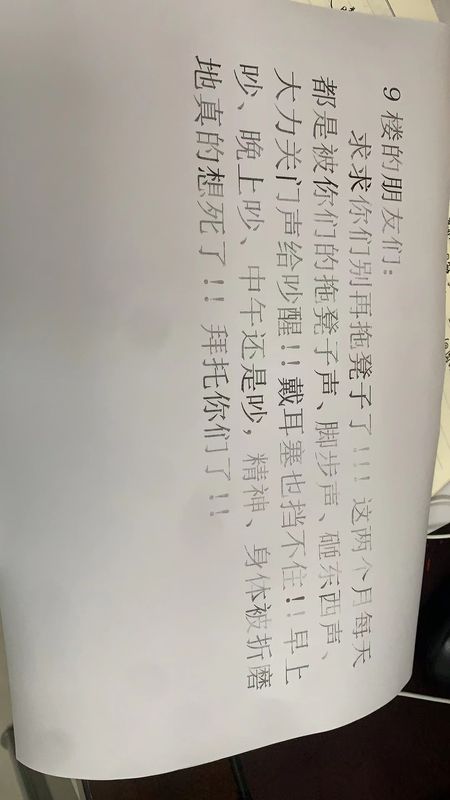 9 楼的朋友们：
求求你们别再拖凳子了!!! 这两个月每天
都是被你们的拖凳子声、脚步声、砸东西声、
大力关门声给吵醒!! 戴耳塞也挡不住!! 早上
吵、晚上吵、中午还是吵，精神、身体被折磨
地真的想死了!! 拜托你们了!!